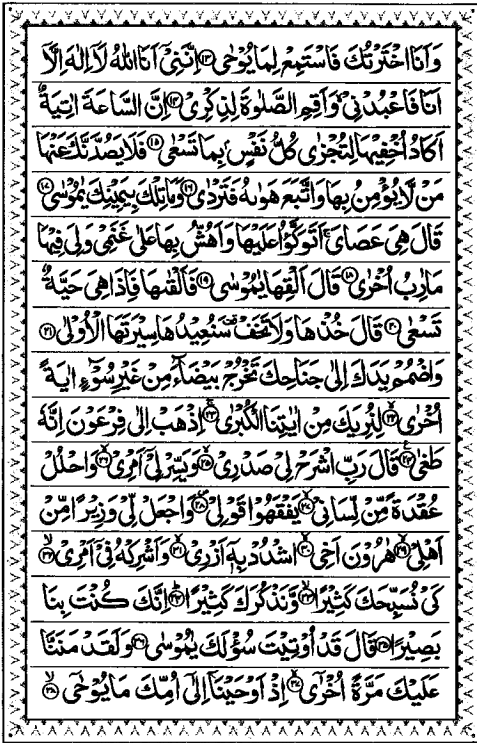 وَاَنَا اخْتَرْتُكَ فَاسْتَمِعْ لِمَا يُوْحٰى ۝۱۳ اِنَّنِيْٓ اَنَا اللّٰهُ لَآ اِلٰهَ اِلَّآ
اَنَا فَاعْبُدْنِيْ ۙ وَاَقِمِ الصَّلٰوةَ لِذِكْرِيْ ۝۱۴ اِنَّ السَّاعَةَ اٰتِيَةٌ
اَكَادُ اُخْفِيْهَا لِتُجْزٰى كُلُّ نَفْسٍۭ بِمَا تَسْعٰى ۝۱۵ فَلَا يَصُدَّنَّكَ عَنْهَا
مَنْ لَّا يُؤْمِنُ بِهَا وَاتَّبَعَ هَوٰىهُ فَتَرْدٰى ۝۱۶ وَمَا تِلْكَ بِيَمِيْنِكَ يٰمُوْسٰى ۝۱۷
قَالَ هِيَ عَصَايَ ۚ اَتَوَكَّؤُا عَلَيْهَا وَاَهُشُّ بِهَا عَلٰى غَنَمِيْ وَلِيَ فِيْهَا
مَاٰرِبُ اُخْرٰى ۝۱۸ قَالَ اَلْقِهَا يٰمُوْسٰى ۝۱۹ فَاَلْقٰىهَا فَاِذَا هِيَ حَيَّةٌ
تَسْعٰى ۝۲۰ قَالَ خُذْهَا وَلَا تَخَفْ ۥ سَنُعِيْدُهَا سِيْرَتَهَا الْاُوْلٰى ۝۲۱
وَاضْمُمْ يَدَكَ اِلٰى جَنَاحِكَ تَخْرُجْ بَيْضَآءَ مِنْ غَيْرِ سُوْٓءٍ اٰيَةً
اُخْرٰى ۝۲۲ لِنُرِيَكَ مِنْ اٰيٰتِنَا الْكُبْرٰى ۝۲۳ اِذْهَبْ اِلٰى فِرْعَوْنَ اِنَّهٗ
طَغٰى ۝۲۴ قَالَ رَبِّ اشْرَحْ لِيْ صَدْرِيْ ۝۲۵ وَيَسِّرْ لِيْٓ اَمْرِيْ ۝۲۶ وَاحْلُلْ
عُقْدَةً مِّنْ لِّسَانِيْ ۝۲۷ يَفْقَهُوْا قَوْلِيْ ۝۲۸ وَاجْعَلْ لِّيْ وَزِيْرًا مِّنْ
اَهْلِيْ ۝۲۹ هٰرُوْنَ اَخِي ۝۳۰ اشْدُدْ بِهٖٓ اَزْرِيْ ۝۳۱ وَاَشْرِكْهُ فِيْٓ اَمْرِيْ ۝۳۲
كَيْ نُسَبِّحَكَ كَثِيْرًا ۝۳۳ وَّنَذْكُرَكَ كَثِيْرًا ۝۳۴ اِنَّكَ كُنْتَ بِنَا
بَصِيْرًا ۝۳۵ قَالَ قَدْ اُوْتِيْتَ سُؤْلَكَ يٰمُوْسٰى ۝۳۶ وَلَقَدْ مَنَنَّا
عَلَيْكَ مَرَّةً اُخْرٰٓى ۝۳۷ اِذْ اَوْحَيْنَآ اِلٰٓى اُمِّكَ مَا يُوْحٰٓى ۝۳۸